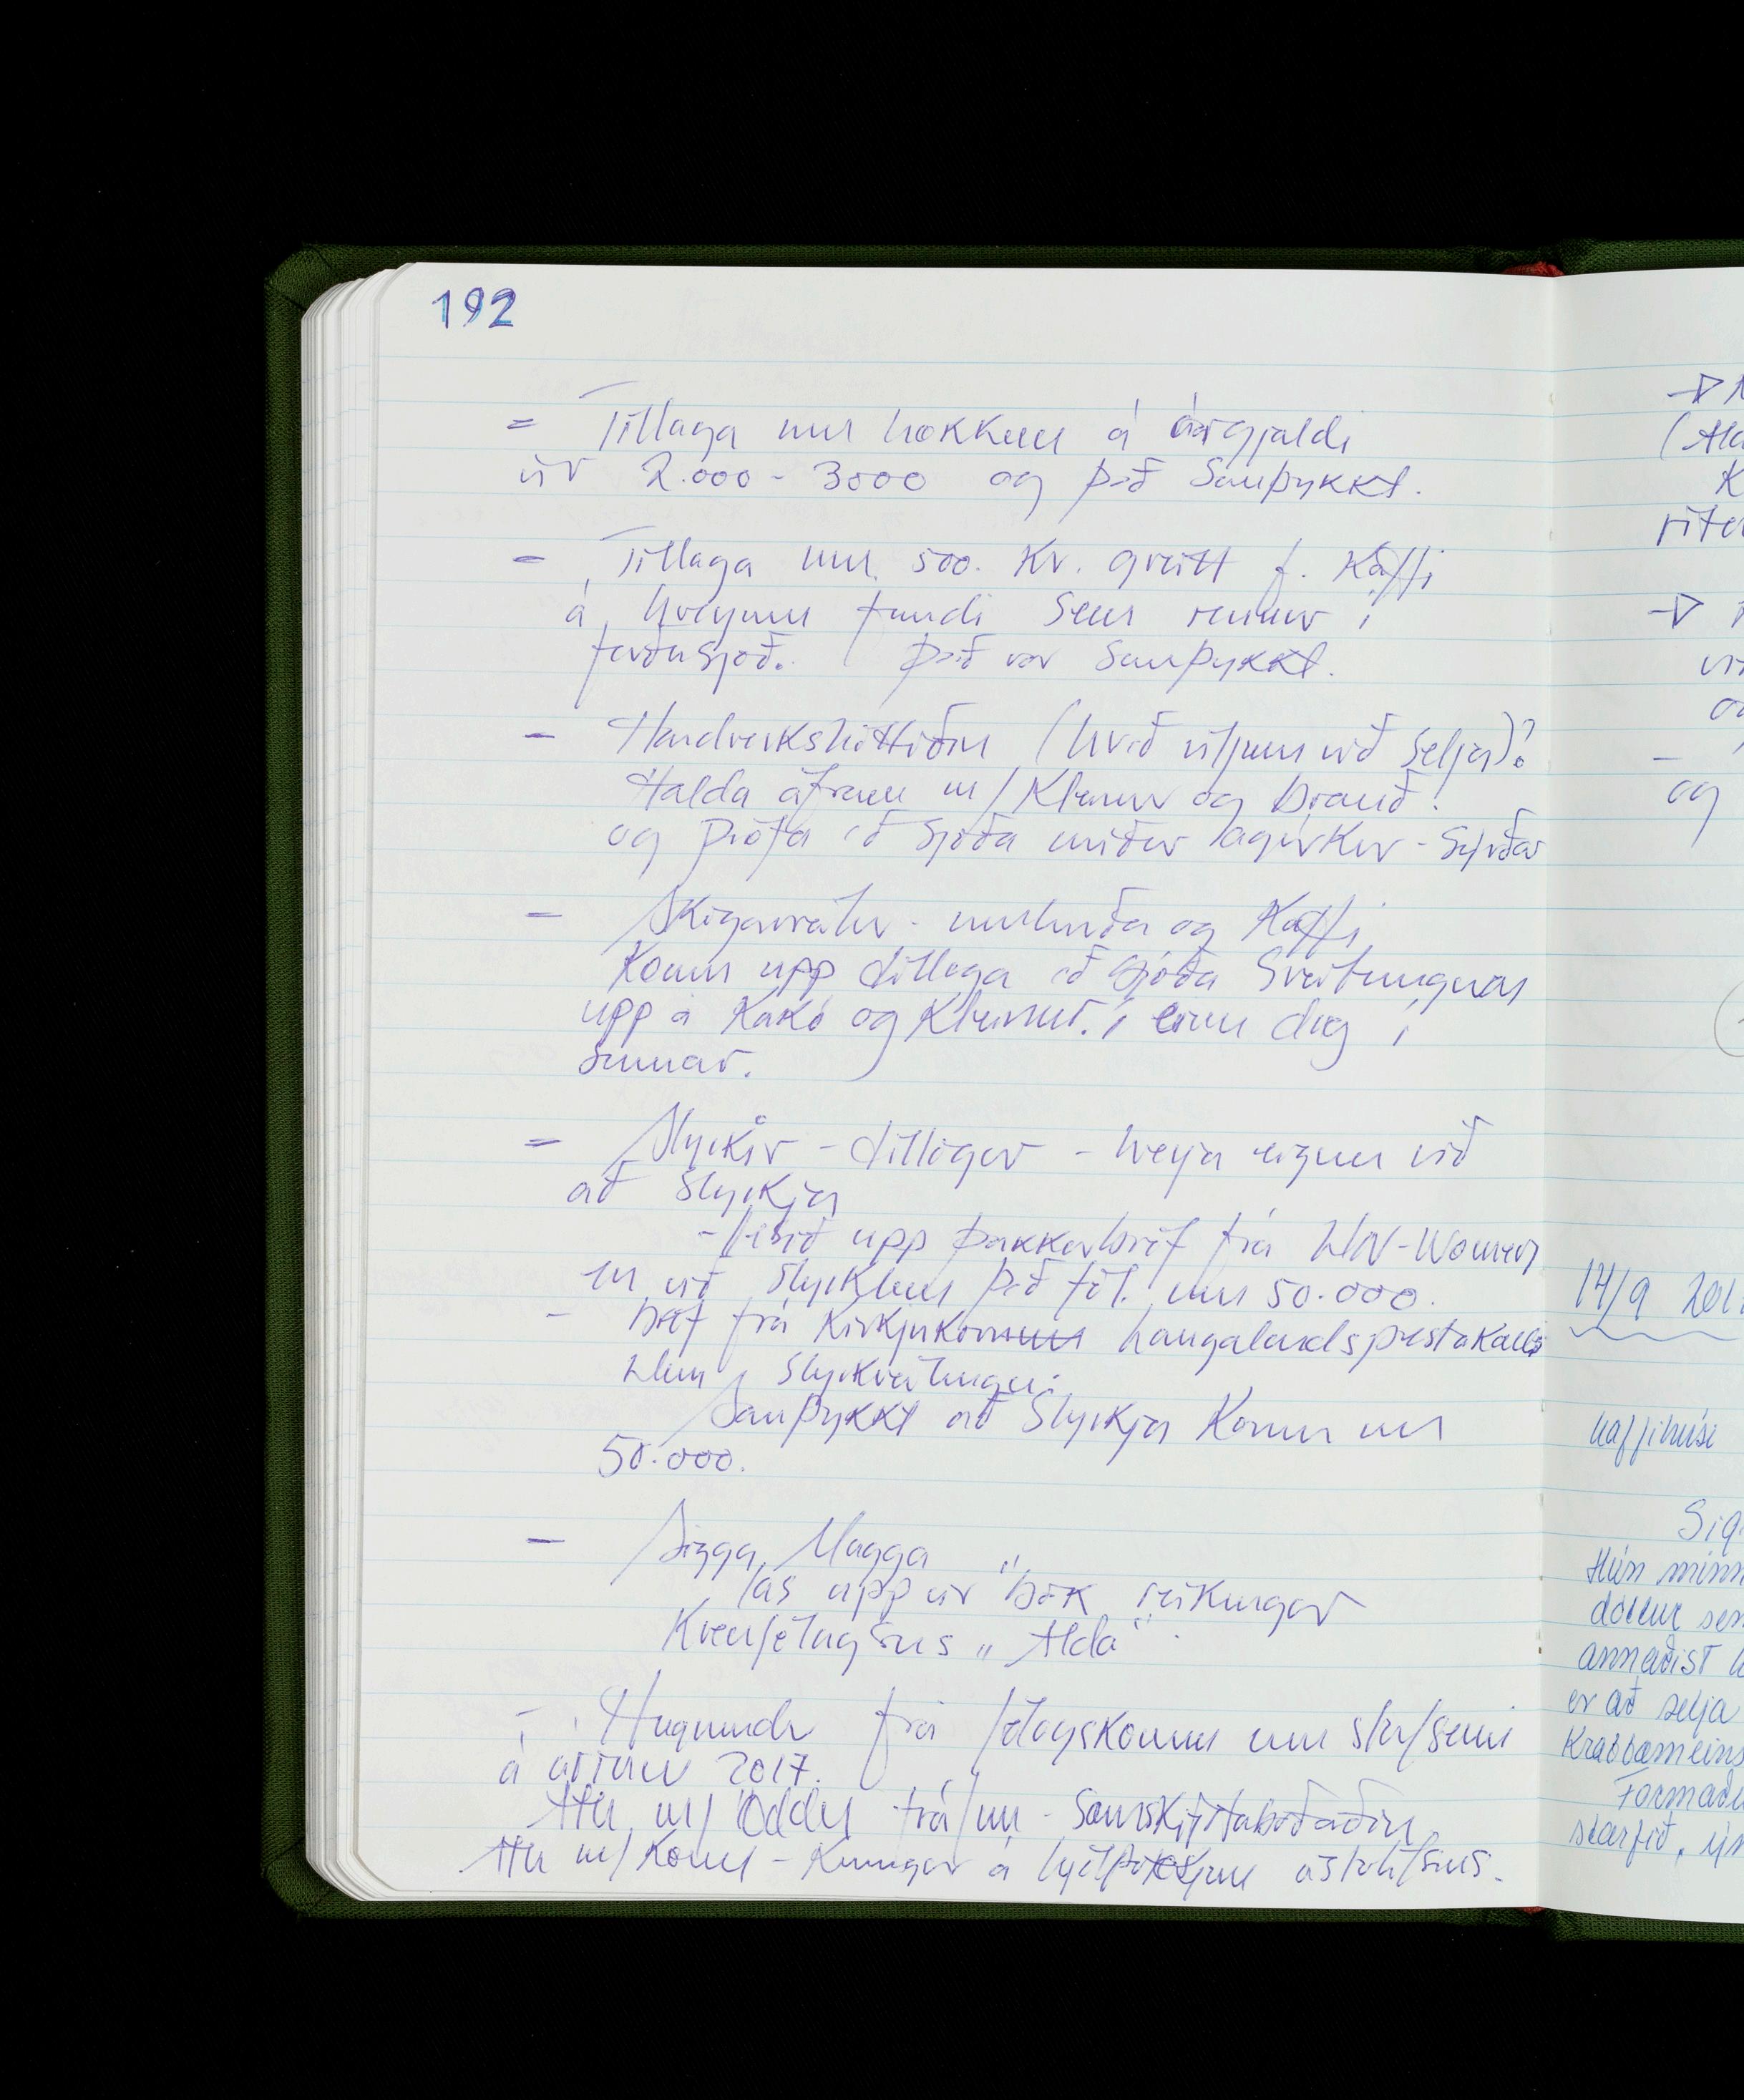 192
= Tillaga um hækkun á árgjaldi
úr 2.000 - 3000 og það samþykkt.
- Tillaga um 500. kr. greitt f. Kaffi
á hverjum fundi sem rennur í
ferðasjóð. Það var samþykkt.
- Handverkshátíðin (hvað viljum við selja)?
Halda áfram m/ Kleinur og brauð.
og prófa að sjóða niður
- Skógarreitur - umhirða og Kaffi
Komm upp tillaga að bjóða Sveitungum
upp á Kakó og Kleinur. í einn dag í
sumar.
= Styrkir - tillögur - hverja eigum við
að styrkja
- lesið upp þakkarbréf frá UN-Women
en við styrktum það fél. um 50.000.
- Bréf frá Kirkjukórnum Laugalandsprestakalls
um styrkveitingu.
Samþykkt að styrkja Kórinn um
50.000.
- Sigga Magga
las upp úr bók reikningar
Kvenfélagsins „Alda“.
- Hugmyndir frá félagskonum um starfsemi
á árinu 2017.
Ath m/ Oddu
Ath m/ Konur - Kynningar á
→
(Ald
→
og
14/9 201
kaffihúsi
Sig
Hún minn
dollur sem
annaðist
er að selja
Krabbameins
Formaður
starfið.